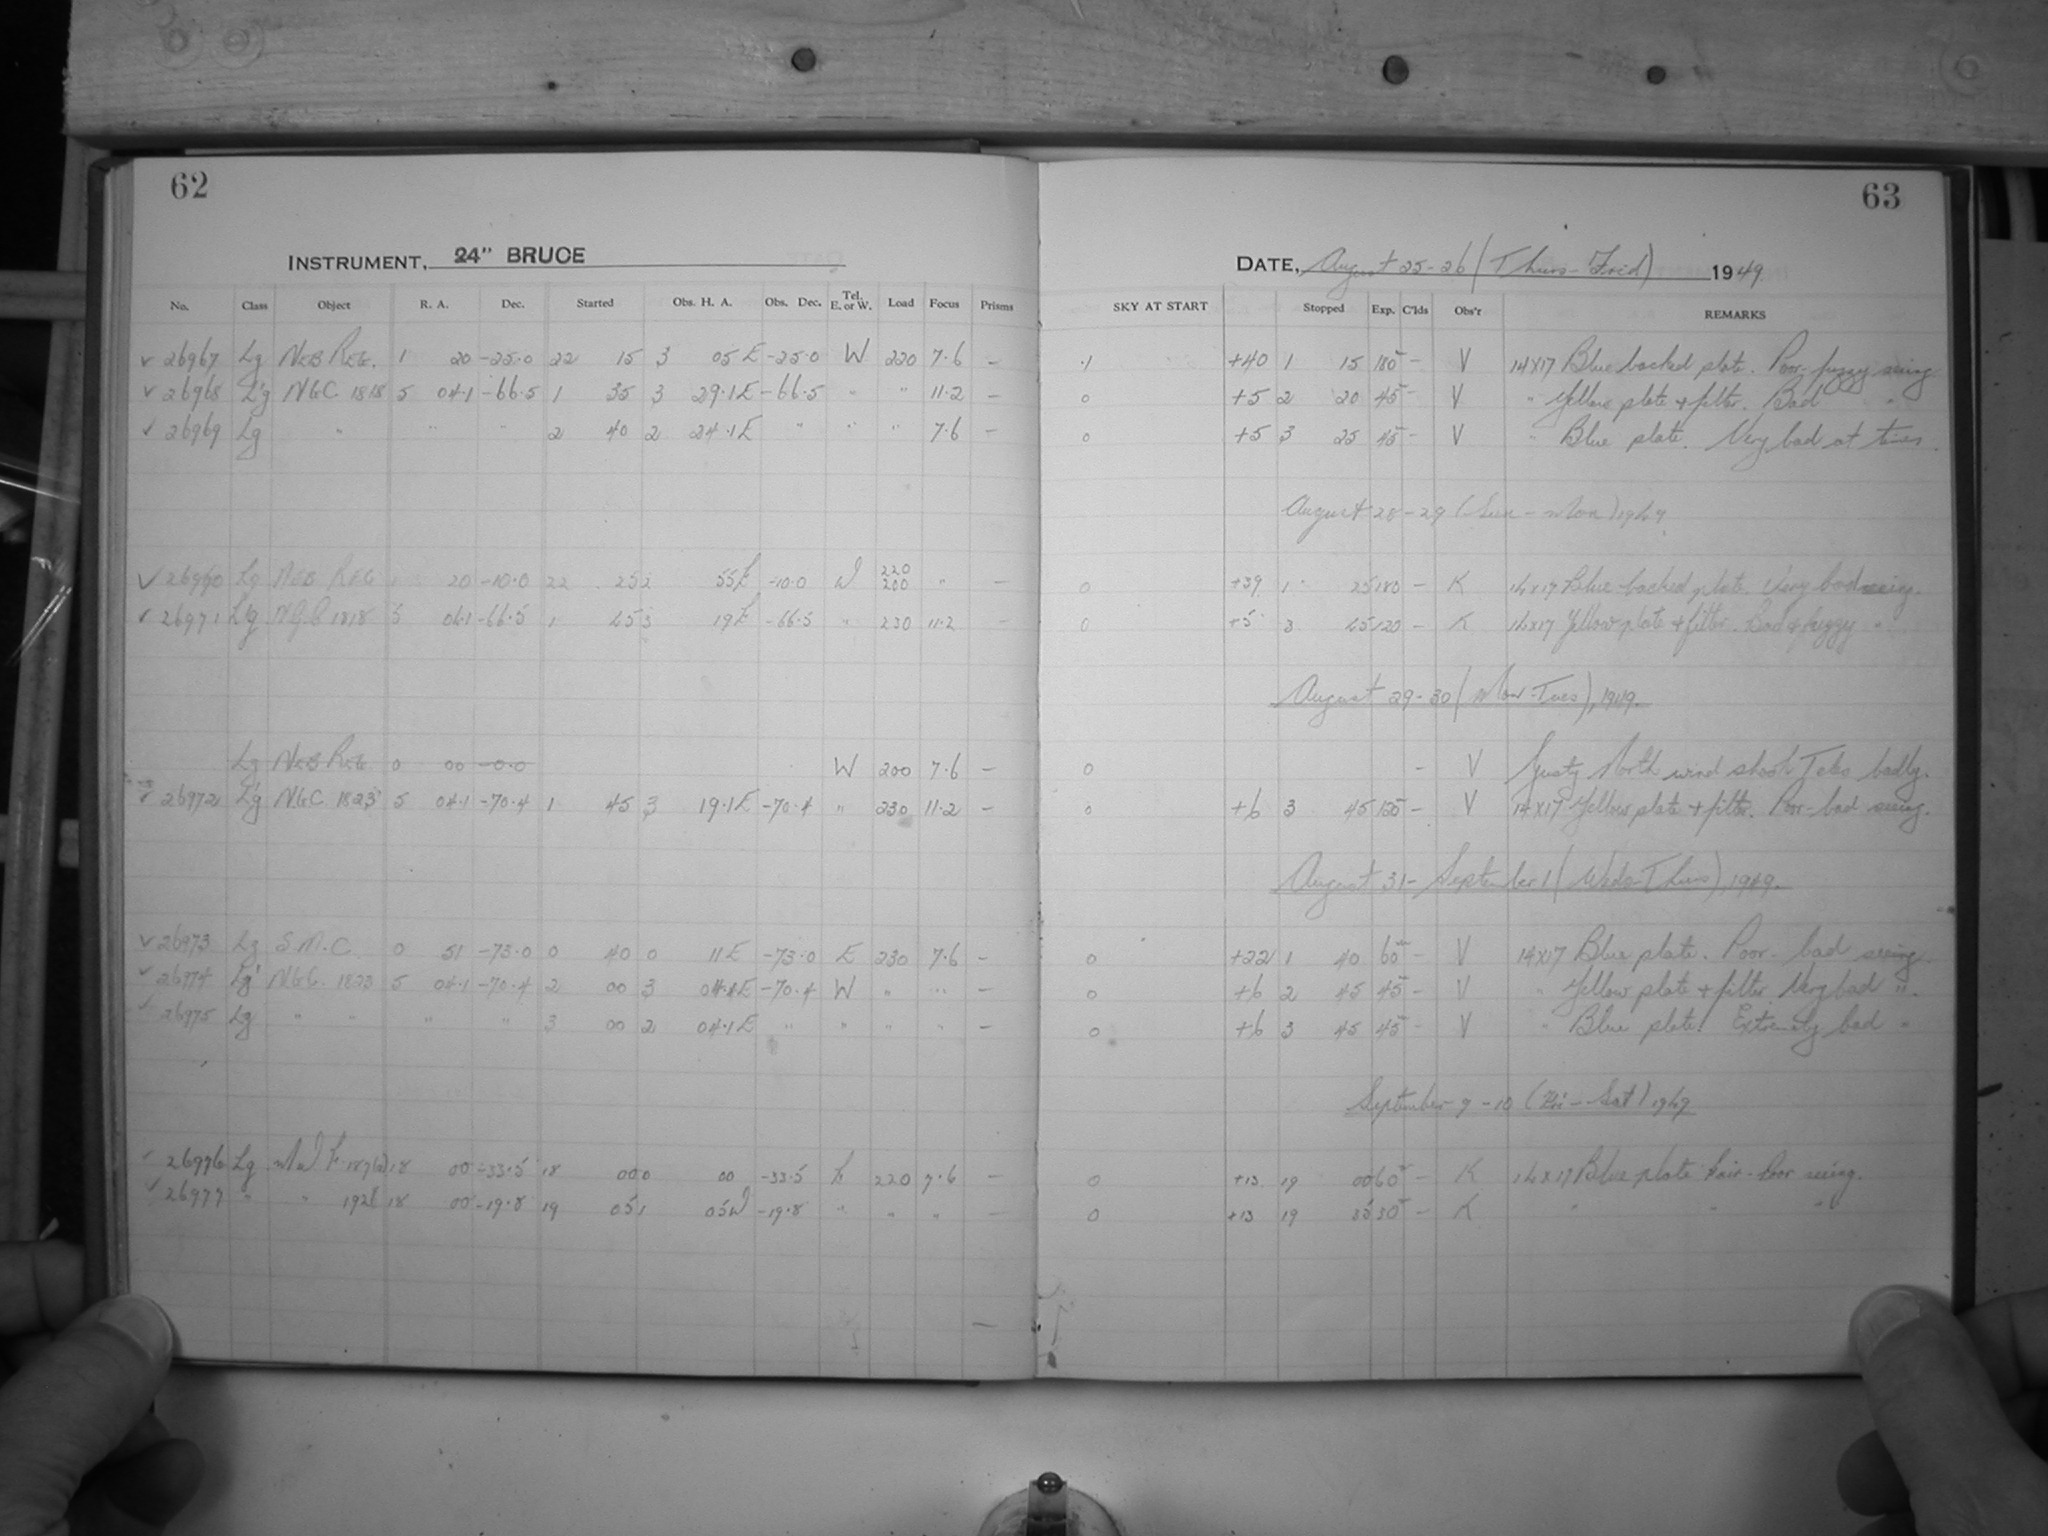 62
INSTRUMENT, 24" BRUCE
No. Class Object R. A. Dec. Started Obs. H. A. Obs. Dec. Tel. E. or W. Load Focus Prisms
26967 Lg NEB REG. 1 20 -25.0 22 15 3 05 E -25.0 W 220 7.6 —
26968 L'g NGC 1818 5 04.1 -66.5 1 35 3 29.1 E -66.5 " " 11.2 —
26969 Lg " " " 2 40 2 24.1 E " " " 7.6 —
Lg NEB REG 20 -10.0 22 25 2 55 E -10.0 W 220 200 " —
26971 L'g NGC 1818 5 04.1 -66.5 1 45 3 19 E -66.5 " 230 11.2 —
Lg NEB REG 0 00 -0.0 W 200 7.6 —
26972 L'g NGC 1823 5 04.1 -70.4 1 45 3 19.1 E -70.4 " 230 11.2 —
26973 Lg S.M.C. 0 51 -73.0 0 40 0 11 E -73.0 E 230 7.6 —
26974 L'g NGC. 1823 5 04.1 -70.4 2 00 3 -70.4 W " —
26975 Lg " " " " 3 00 2 04.1 E " " " " —
26976 Lg MWF 18 00 -33.5 18 00 0 00 -33.5 E 220 7.6 —
26977 " " 18 00 -19.8 19 05 1 05 W -19.8 " " " —
63
DATE, August 25-26 (Thurs-Frid) 1949
SKY AT START Stopped Exp. C'lds Obs'r REMARKS
.1 +40 1 15 180 — V 14X17 Blue backed plate. Poor-fuzzy seeing
0 +5 2 20 45 — V " Yellow plate + filter. Bad "
0 +5 3 25 45 — V " Blue plate. Very bad at times.
August 28-29 (Sun-Mon) 1949
0 +39 1 25 180 — K 14x17 Blue backed plate. Very bad seeing.
0 +5 3 45 120 — K 14x17 Yellow plate + filter. Bad & fuzzy "
August 29-30 (Mon-Tues), 1949.
0 — V Gusty North wind shook Teles badly.
0 +6 3 45 120 — V 14X17 Yellow plate + filter. Poor-bad seeing.
August 31- September 1 (Weds-Thurs), 1949.
0 +22 1 40 60 — V 14X17 Blue plate. Poor- bad seeing.
0 +6 2 45 45 — V " Yellow plate + filter. Very bad ".
0 +6 3 45 45 — V " Blue plate. Extremely bad "
September 9-10 (Fri-Sat) 1949
0 +13 19 00 60 — K 14x17 Blue plate Fair-Poor seeing.
0 +13 19 35 30 — K " " "